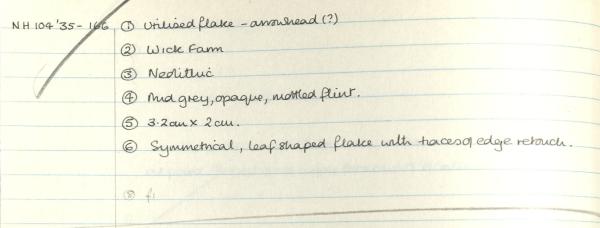 NH 104'35-166 ① Utilised flake - arrowhead (?)
② Wick Farm
③ Neolithic
④ Mid grey, opaque, mottled flint.
⑤ 3.2cm x 2cm.
⑥ Symmetrical, leaf shaped flake with traces of edge retouch.